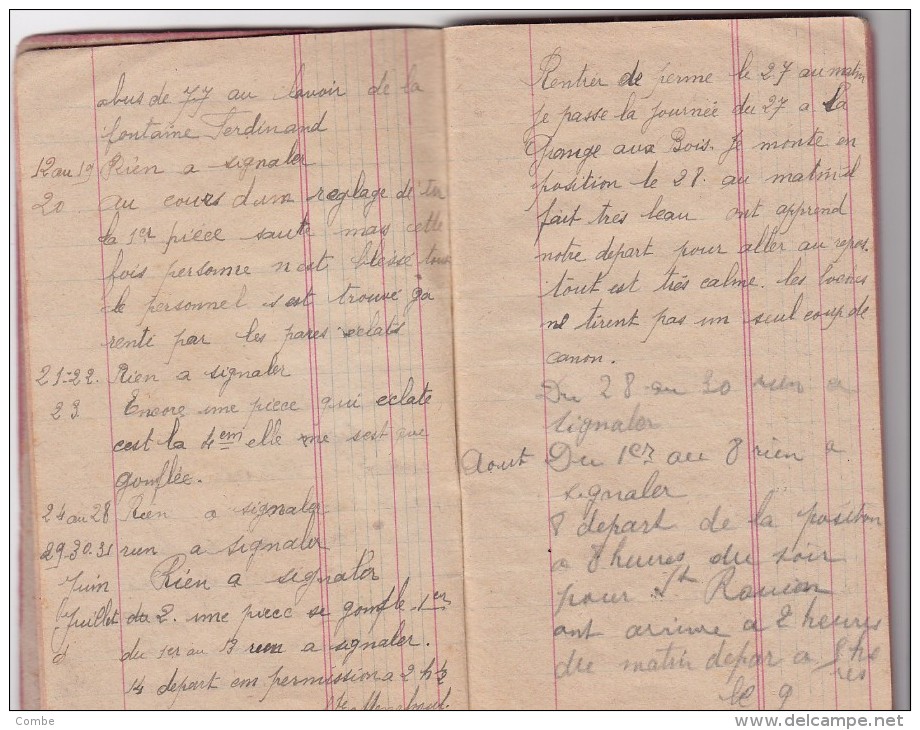 obus de 77 au lavoir de la
fontaine Ferdinand
12 au 19 Rien a signaler
20 au cours d'un reglage de tir
la 1er piece saute mas cette
fois personne n'est blessé tous
le personnel s'est trouvé ga
renti par les pares eclats
21-22. Rien a signaler
23 Encore une piece qui eclate
cest la 4em elle ne sest que
gonflée.
24 au 28 Rien a signaler
29-30-31 rien a signaler
Juin Rien a signaler
Juillet du 2. une piece se gonfle 1er
d du 1er au 13 rien a signaler.
14 depart em permission a 2 h½
Rentrer de perme le 27 au matin
Je passe la journée du 27 a la
Grange aux Bois. Je monte en
position le 28. au matin il
fait très beau ont apprend
notre depart pour aller au repos.
tout est très calme. les boches
ne tirent pas un seul coup de
canon.
Du 28 au 30 rien a
signaler
Aout Du 1er au 8 rien a
signaler
8 depart de la position
a 8 heures du soir
pour St
ont arrive a 2 heures
du matin depar a 8 he
res
le 9
Combe
delcampe.net